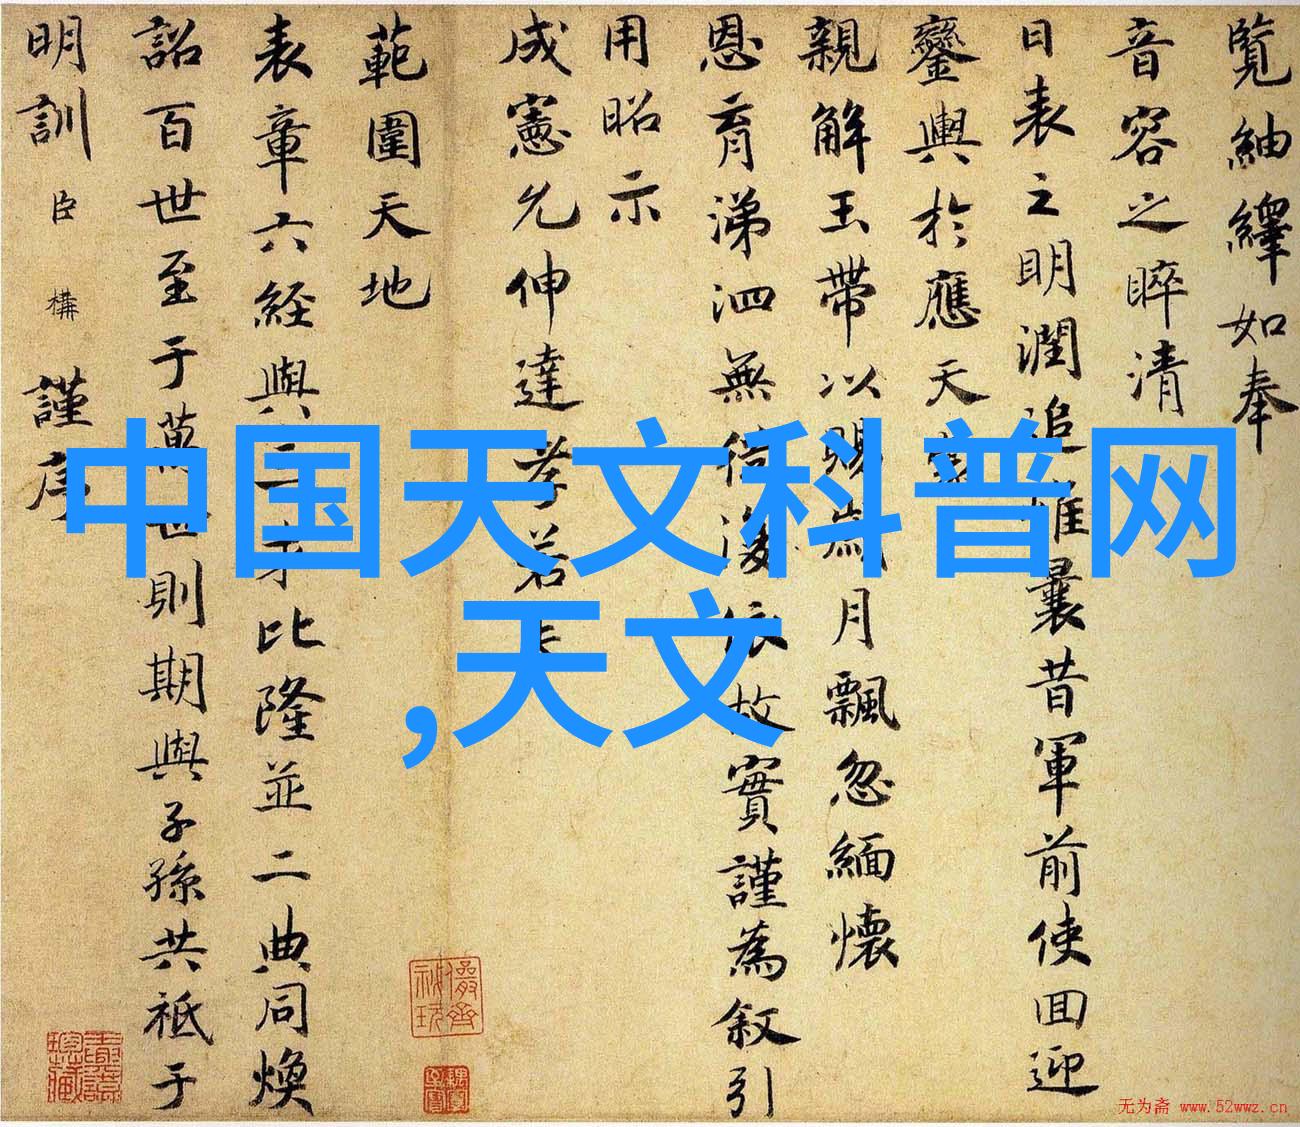 覧紬繹如奉
音容之睟清
日表之明潤追惟曩昔軍前使回迎
鑾輿於應天
親解玉帶以賜歲月飄忽緬懷
恩育涕泗無依故實謹為叙引
用昭示
成憲允伸達孝若
範圍天地
表章六経與三才比隆並二典同煥
詔百世至于萬世則期與子孫共祗于
明訓臣構謹序
中国天文科普网
,天文
无为斋 www.52wwz.cn